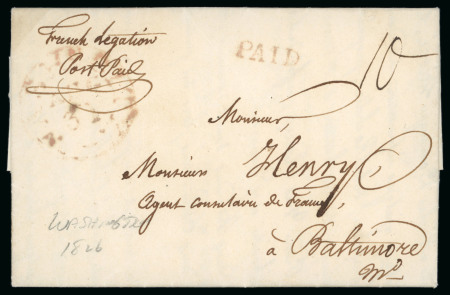 French Legation
Post Paid
PAID
10
Monsieur,
Monsieur Henry
Agent consulaire de France,
à Baltimore
Md
1826